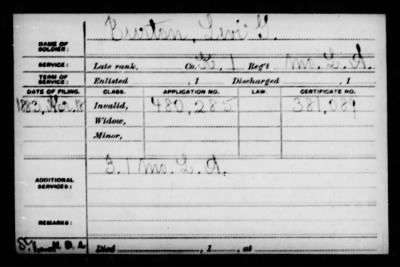 NAME OF SOLDIER: Burton, Levi G.
SERVICE: Late rank, Co. K, 1 Reg't Mo. L. A.
TERM OF SERVICE: Enlisted , 1 Discharged , 1
DATE OF FILING. CLASS. APPLICATION NO. LAW. CERTIFICATE NO.
1883, 18 Invalid, 480,285 381,089
Widow,
Minor,
ADDITIONAL SERVICES: 1 Mo. L. A.
REMARKS:
Died , 1 , at